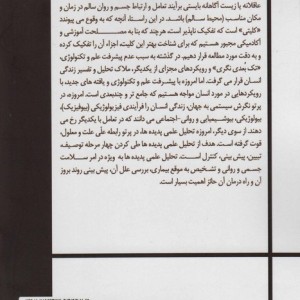 عاقلانه یا زیست آگاهانه بایستی برآیند تعامل و ارتباط جسم و روان سالم در زمان و
مکان مناسب (محیط سالم) باشد. در این راستا، آنچه که به وقوع می پیوندد
«کلیتی» است که تفکیک ناپذیر است. هرچند که بنا به مصلحت آموزشی و
آکادمیکی مجبور هستیم که برای شناخت بهتر این کلیت، اجزاء آن را تفکیک کرده
و به دقت مورد مطالعه قرار دهیم. در گذشته به سبب عدم پیشرفت علم و تکنولوژی،
«تک بعدی نگری» و رویکردهای مجزای از یکدیگر، ملاک تحلیل و تفسیر زندگی
انسان قرار می گرفت. اما امروزه با پیشرفت علم و تکنولوژی و یافته های جدید، با
رویکردهایی در مورد انسان مواجه هستیم که جامع تر و چندبعدی است. امروزه، در
پرتو نگرش سیستمی به جهان، زندگی انسان را فرآیندی فیزیولوژیکی (بیوفیزیک)،
بیولوژیکی، بیوشیمیایی و روانی -اجتماعی می دانند که در تعامل با یکدیگر رخ می
دهند. از سوی دیگر، امروزه تحلیل علمی پدیده ها در پرتو رابطه علّی علت و معلول،
قوت گرفته است. هدف از تحلیل علمی پدیده ها طی کردن چهار مرحله توصیف،
تبیین، پیش بینی، کنترل است. تحلیل علمی پدیده ها به ویژه در امر سلامت
جسمی و روانی و تشخیص به موقع بیماری، بررسی علل آن، پیش بینی روند بروز
آن و راه درمان آن حائز اهمیت بسیار است.